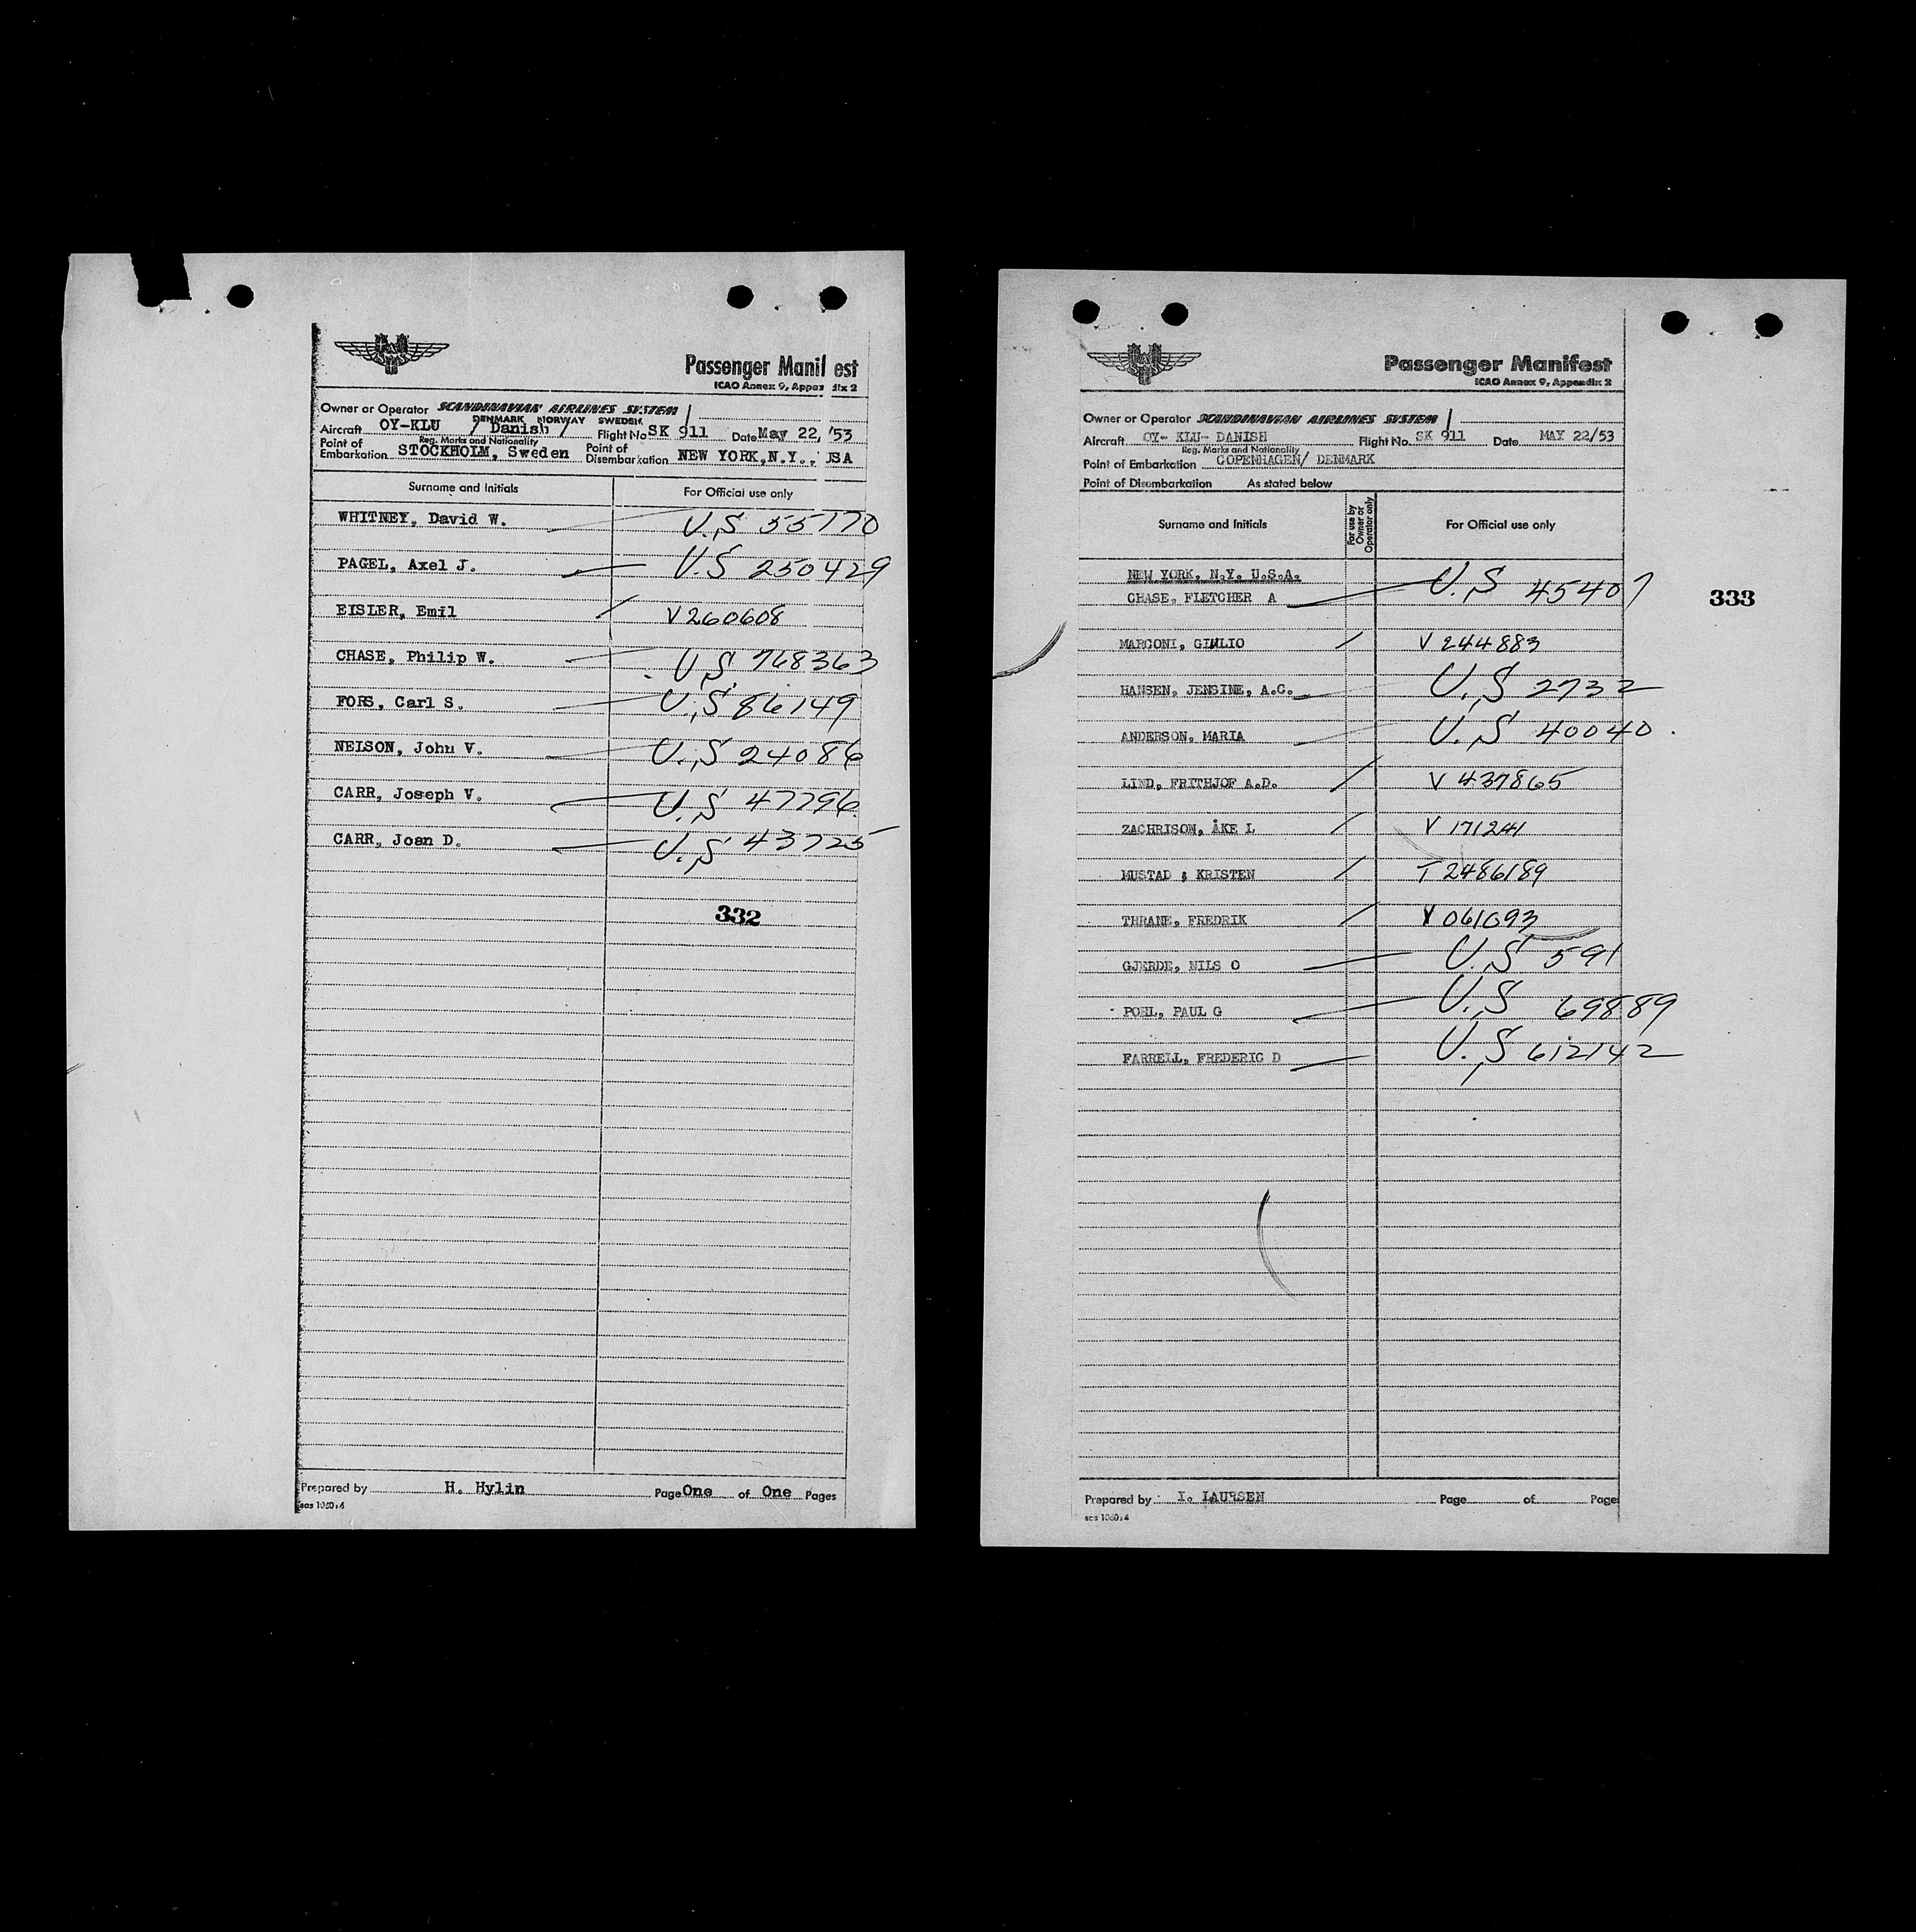 Passenger Manifest
ICAO Annex 9, Appendix 2
Owner or Operator SCANDINAVIAN AIRLINES SYSTEM
DENMARK NORWAY SWEDEN
Aircraft OY-KLU / Danish / Flight No SK 911 Date May 22, '53
Reg. Marks and Nationality
Point of Embarkation STOCKHOLM, Sweden Point of Disembarkation NEW YORK, N.Y., USA
Surname and Initials For Official use only
WHITNEY, David W. U.S 55170
PAGEL, Axel J. U.S 250429
EISLER, Emil V 260608
CHASE, Philip W. U.S. 768363
FORS, Carl S. U.S 86149
NELSON, John V. U.S 24086
CARR, Joseph V. U.S 47796
CARR, Joan D. U.S 43725
332
Prepared by H. Hylin Page One of One Pages
sas 1060:4
Passenger Manifest
ICAO Annex 9, Appendix 2
Owner or Operator SCANDINAVIAN AIRLINES SYSTEM
Aircraft OY- KLU- DANISH Flight No. SK 911 Date MAY 22/53
Reg. Marks and Nationality
Point of Embarkation COPENHAGEN/ DENMARK
Point of Disembarkation As stated below
Surname and Initials For use by Owner or Operator only For Official use only
NEW YORK, N.Y. U.S.A.
CHASE, FLETCHER A U.S 45407
333
MARCONI, GIULIO V 244883
HANSEN, JENSINE, A.C. U.S 2732
ANDERSON, MARIA U.S 40040
LIND, FRITHJOF A.D. V 437865
ZACHRISON, ÅKE L V 171241
MUSTAD, KRISTEN T 2486189
THRANE, FREDRIK V 061093
GJERDE, NILS O U.S 591
POHL, PAUL G U.S 69889
FARRELL, FREDERIC D U.S 612142
Prepared by I. LAURSEN Page of Page
sas 1060:4